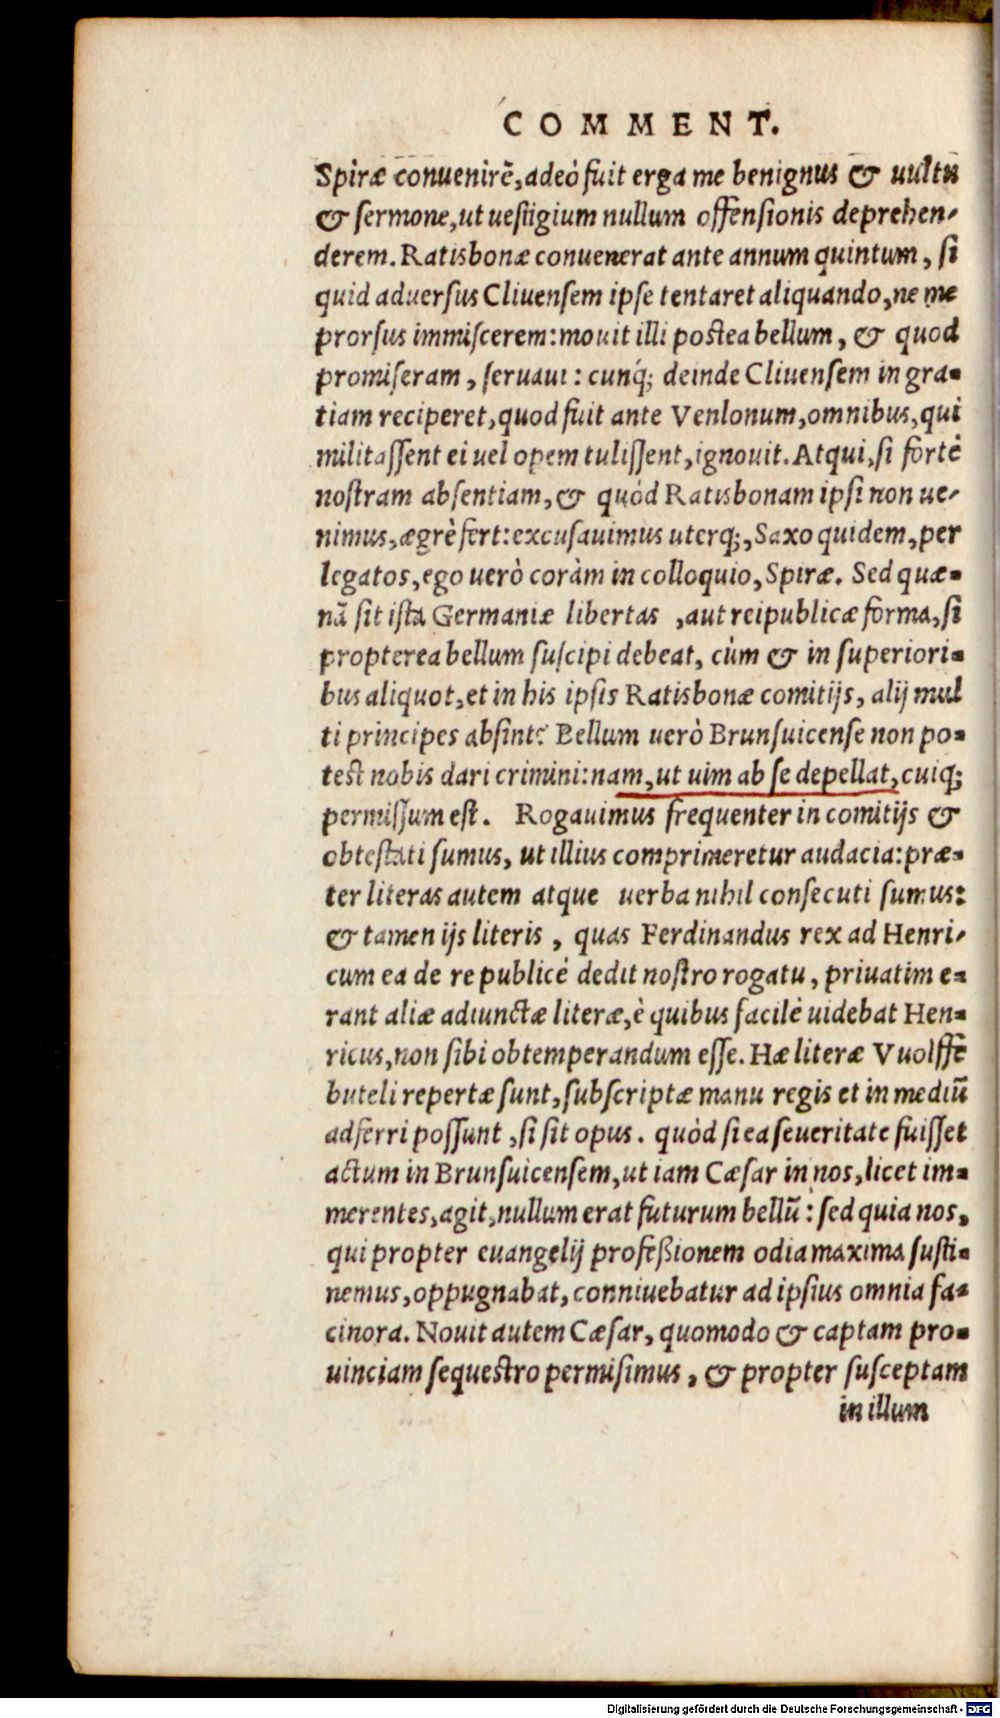 COMMENT.
Spiræ convenirē, adeò fuit erga me benignus & uultu
& sermone, ut uestigium nullum offensionis deprehen-
derem. Ratisbonæ convenerat ante annum quintum, si
quid adversus Clivensem ipse tentaret aliquando, ne me
prorsus immiscerem: movit illi postea bellum, & quod
promiseram, servavi: cunq́; deinde Clivensem in gra-
tiam reciperet, quod fuit ante Venlonum, omnibus, qui
militassent ei vel opem tulissent, ignovit. Atqui, si fortè
nostram absentiam, & quòd Ratisbonam ipsi non ve-
nimus, ægrè fert: excusavimus uterq;, Saxo quidem, per
legatos, ego verò coràm in colloquio, Spiræ. Sed quæ-
nā sit ista Germaniæ libertas, aut reipublicæ forma, si
propterea bellum suscipi debeat, cùm & in superiori-
bus aliquot, et in his ipsis Ratisbonæ comitijs, alij mul
ti principes absint? Bellum verò Brunsuicense non po-
test nobis dari crimini: nam, ut vim ab se depellat, cuiq;
permissum est. Rogavimus frequenter in comitijs &
obtestati sumus, ut illius comprimeretur audacia: præ-
ter literas autem atque verba nihil consecuti sumus:
& tamen ijs literis, quas Ferdinandus rex ad Henri-
cum ea de re publicè dedit nostro rogatu, privatim e-
rant aliæ adiunctæ literæ, è quibus facilè videbat Hen-
ricus, non sibi obtemperandum esse. Hæ literæ Vuolffē
buteli repertæ sunt, subscriptæ manu regis et in mediū
adferri possunt, si sit opus. quòd si ea severitate fuisset
actum in Brunsuicensem, ut iam Cæsar in nos, licet im-
merentes, agit, nullum erat futurum bellū: sed quia nos,
qui propter evangelij profeßionem odia maxima susti-
nemus, oppugnabat, connivebatur ad ipsius omnia fa-
cinora. Novit autem Cæsar, quomodo & captam pro-
vinciam sequestro permisimus, & propter susceptam
in illum
Digitalisierung gefördert durch die Deutsche Forschungsgemeinschaft - DFG